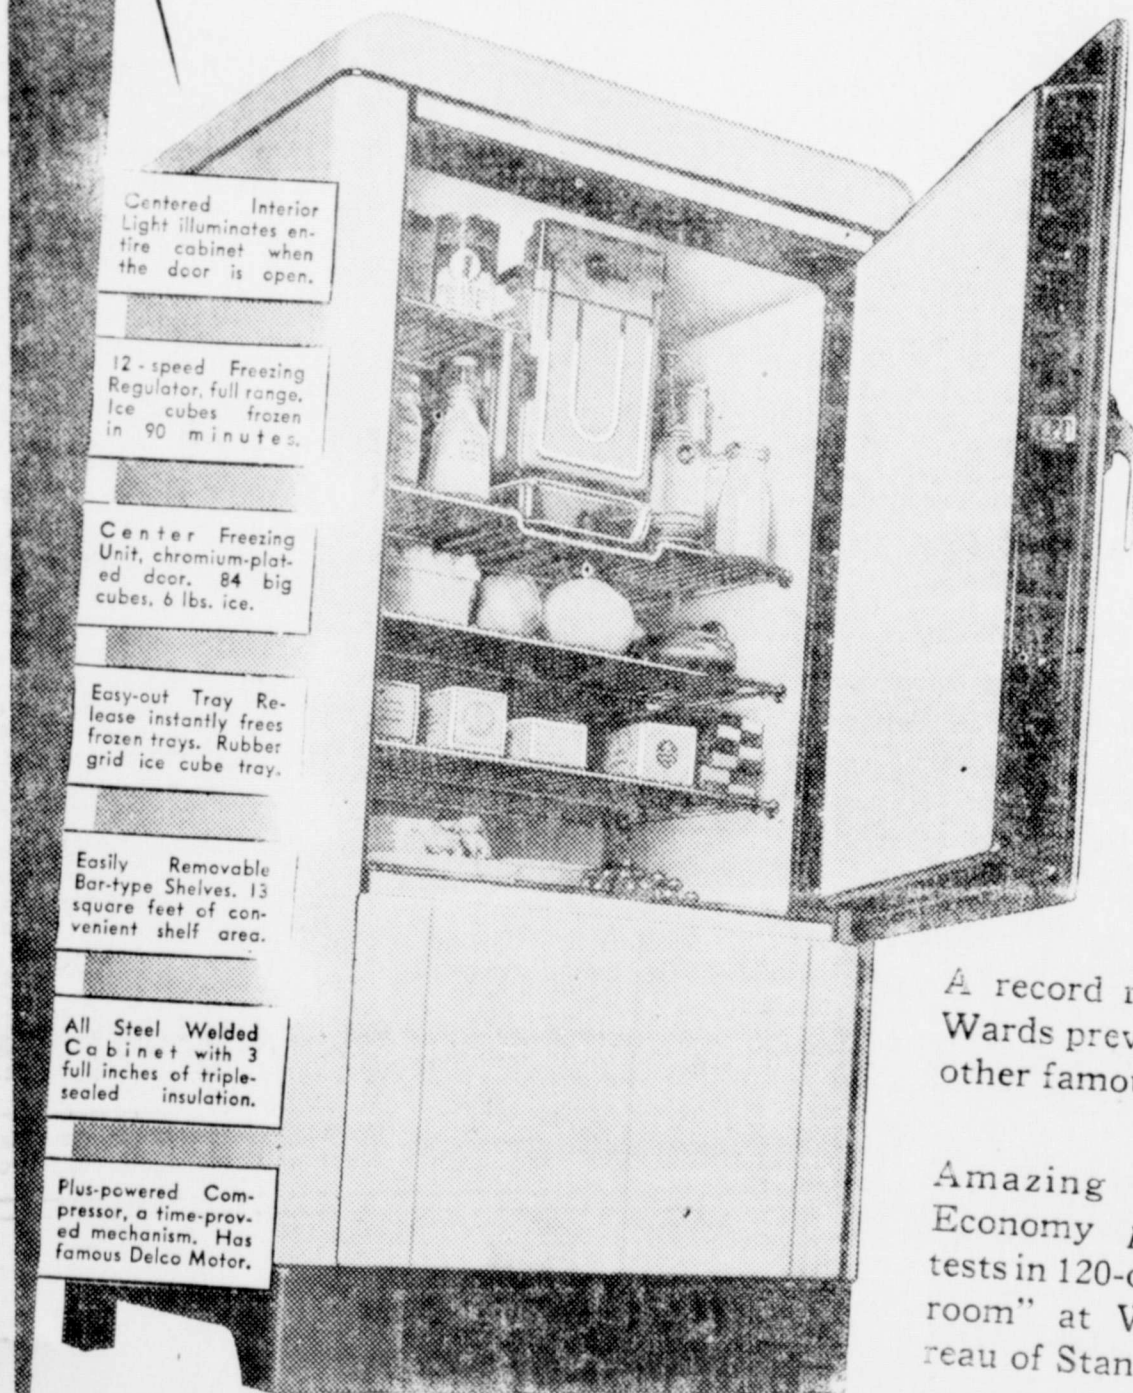 Centered Interior
Light illuminates en-
tire cabinet when
the door is open.
12-speed Freezing
Regulator, full range.
Ice cubes frozen
in 90 minutes.
Center Freezing
Unit, chromium-plat-
ed door. 84 big
cubes, 6 lbs. ice.
Easy-out Tray Re-
lease instantly frees
frozen trays. Rubber
grid ice cube tray.
Easily Removable
Bar-type Shelves. 13
square feet of con-
venient shelf area.
All Steel Welded
Cabinet with 3
full inches of triple-
sealed insulation.
Plus-powered Com-
pressor, a time-prov-
ed mechanism. Has
famous Delco Motor.
A record
Wards prev
other famo
Amazing
Economy
tests in 120-
room" at
reau of Stan